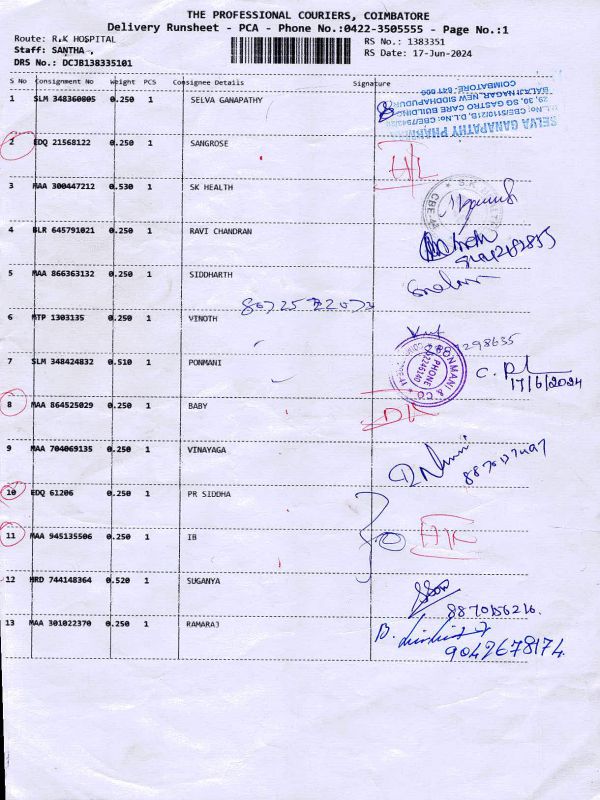 THE PROFESSIONAL COURIERS, COIMBATORE
Delivery Runsheet - PCA - Phone No.:0422-3505555 - Page No.:1
Route: R.K HOSPITAL
RS No.: 1383351
Staff: SANTHA ,
RS Date: 17-Jun-2024
DRS No.: DCJB138335101
S No Consignment No Weight PCS Consignee Details Signature
1 SLM 348360805 0.250 1 SELVA GANAPATHY
SELVA GANAPATHY PHARMACY
29, 30, SG GASTRO CARE BUILDING
BALAJI NAGAR, NEW SIDDHAPUDUR
COIMBATORE
2 EDQ 21568122 0.250 1 SANGROSE
3 MAA 300447212 0.530 1 SK HEALTH
4 BLR 645791021 0.250 1 RAVI CHANDRAN
5 MAA 866363132 0.250 1 SIDDHARTH
6 MTP 1303135 0.250 1 VINOTH
7 SLM 348424832 0.510 1 PONMANI
PONMANI & CO
PHONE
17/6/2024
8 MAA 864525029 0.250 1 BABY
9 MAA 704069135 0.250 1 VINAYAGA
10 EDQ 61206 0.250 1 PR SIDDHA
11 MAA 945135506 0.250 1 IB
12 HRD 744148364 0.520 1 SUGANYA
8870156216.
13 MAA 301022370 0.250 1 RAMARAJ
9042678174